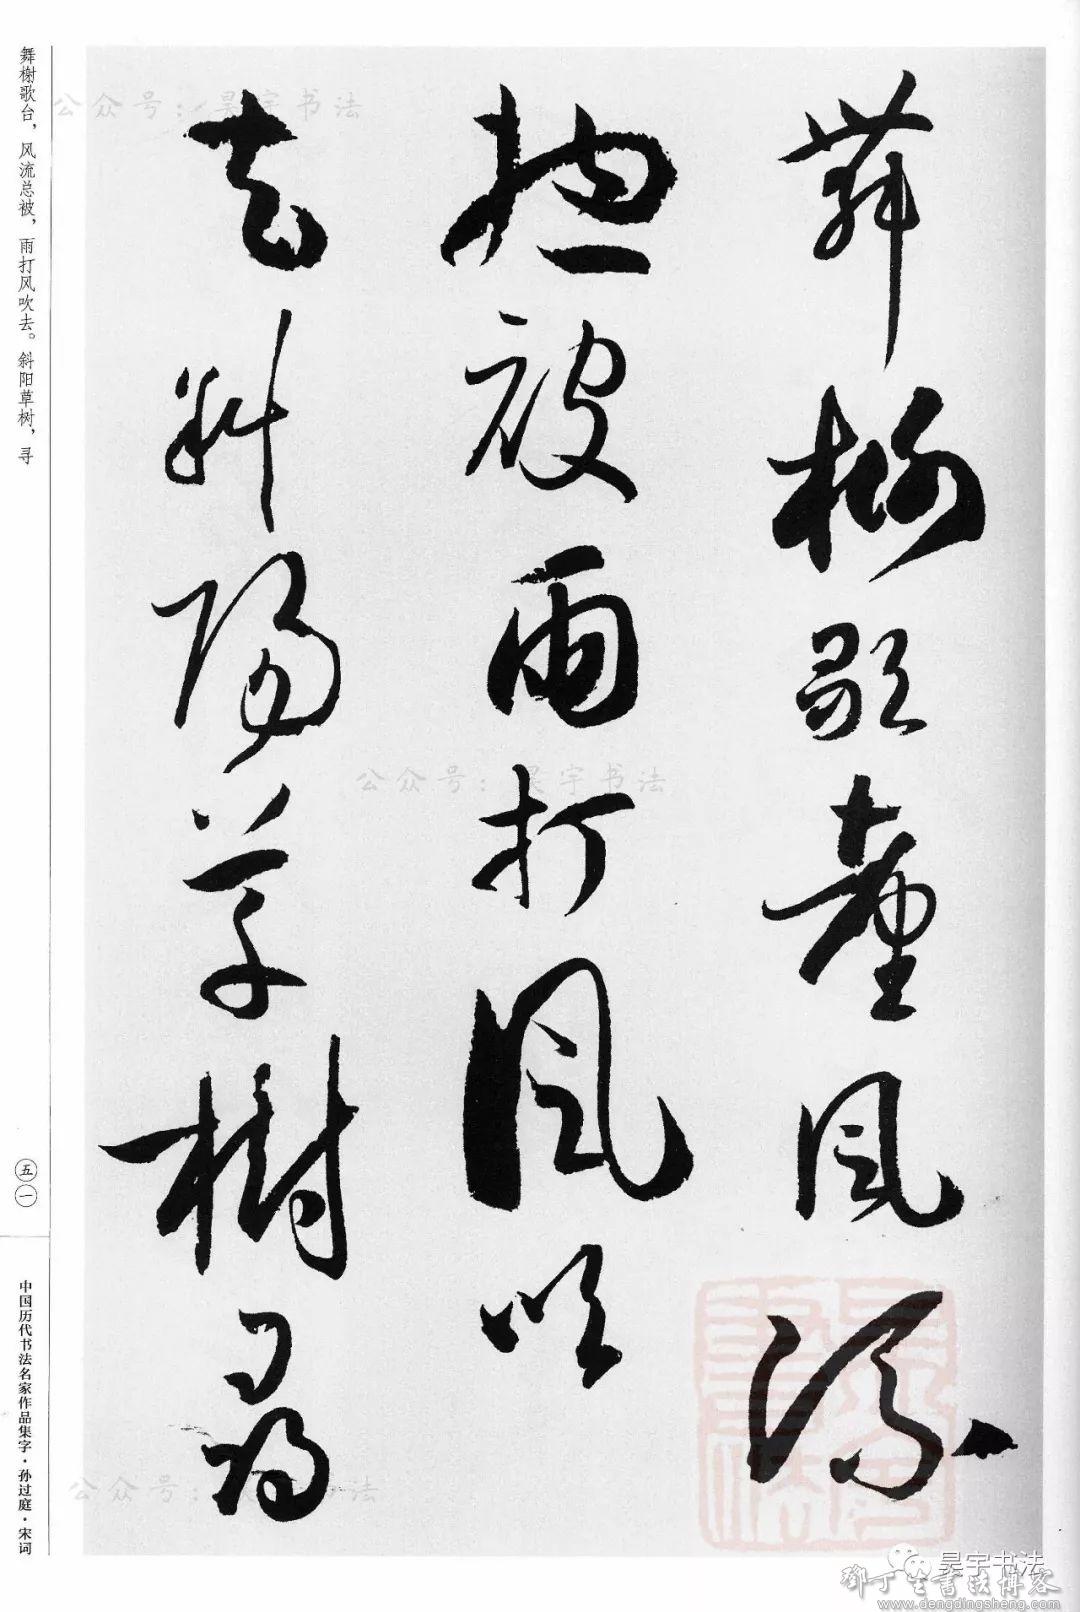 舞榭歌臺風流
揔被雨打風吹
去斜陽草樹尋
舞榭歌台，风流总被，雨打风吹去。斜阳草树，寻
五一
中国历代书法名家作品集字·孙过庭·宋词
公众号：昊宇书法
公众号：昊宇书法
公众号：昊宇书法
昊宇书法
鄧丁生書法博客
www.dengdingsheng.com